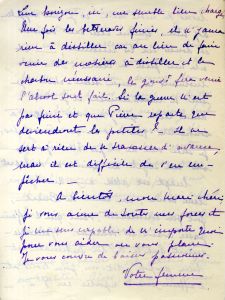 leur horizon, ici, me semble bien chargé
Une fois les betteraves finies, il n'y aura
rien à distiller car au lieu de faire
venir des matières à distiller et le
charbon nécessaire, le gouvt fera venir
l'alcool tout fait. Si la guerre n'est
pas finie et que Pierre reparte, que
deviendront les petites ? Il ne
sert à rien de se tracasser d'avance,
mais il est difficile de s'en em-
pêcher —
A bientôt, mon mari chéri
je vous aime de toutes mes forces et
je me sens capable de n'importe quoi
pour vous aider ou vous plaire.
Je vous couvre de baisers passionnés.
Votre femme